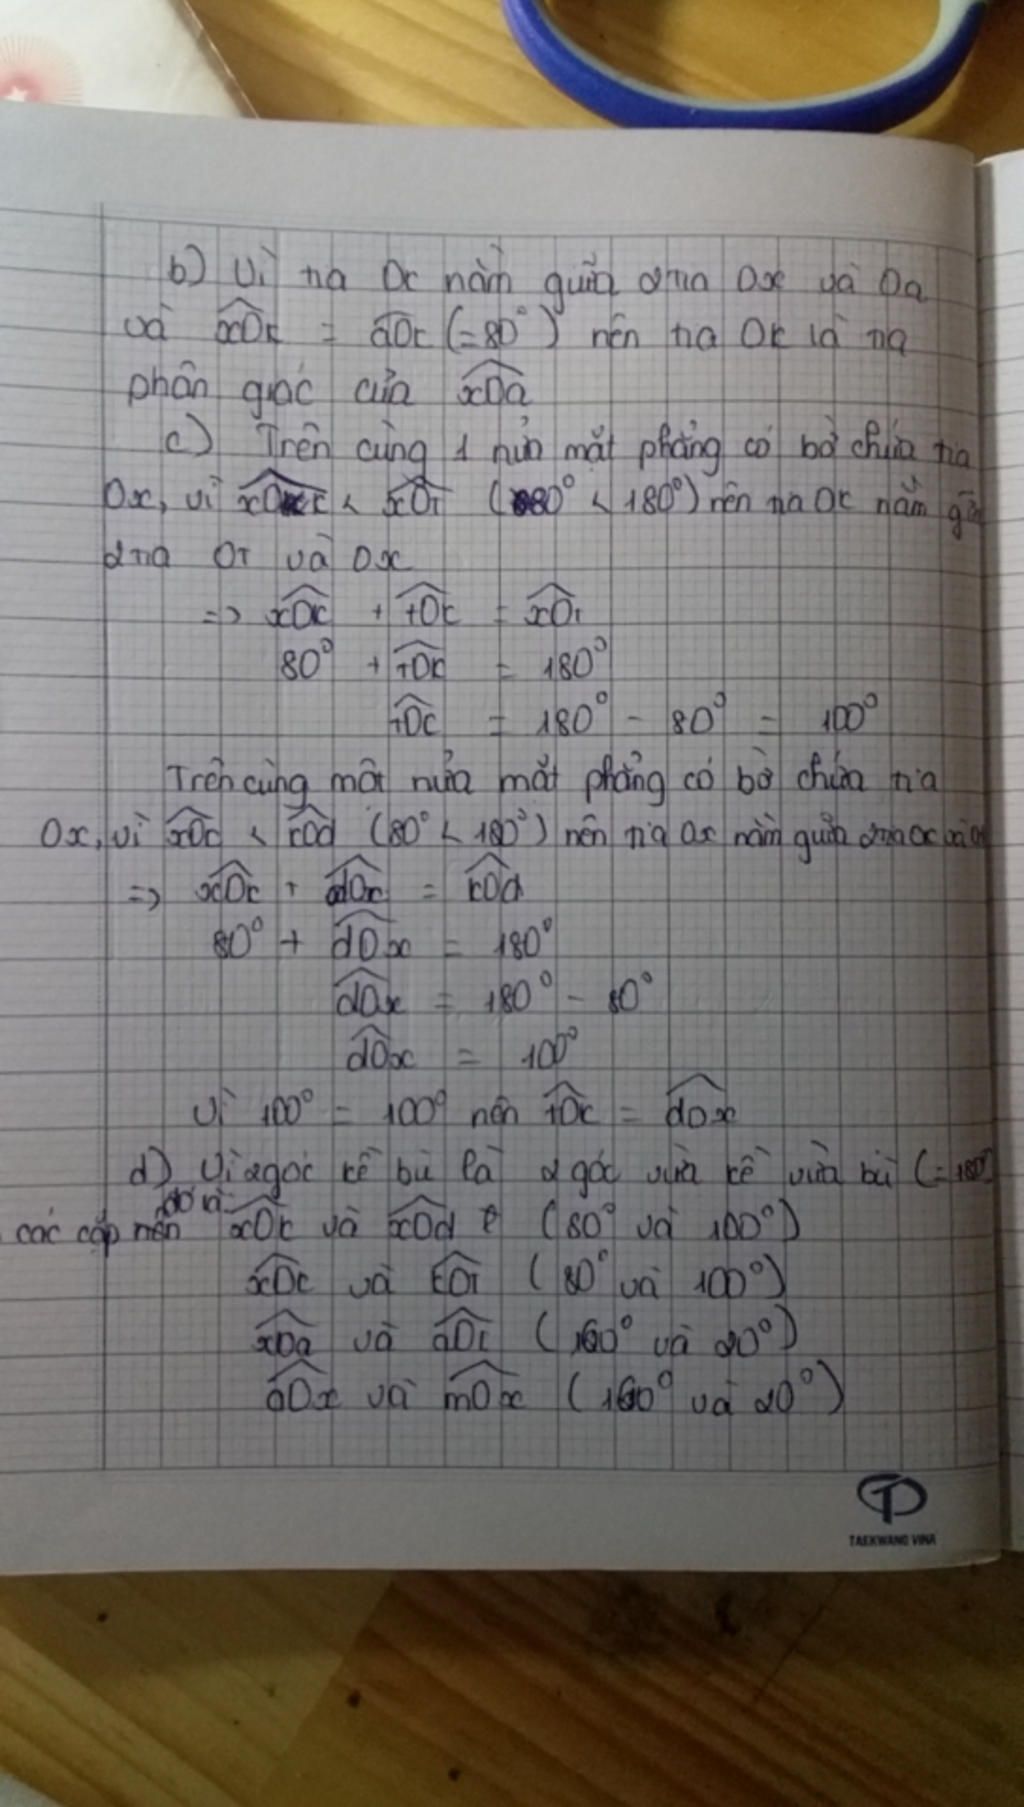 b) Vì tia Ok nằm giữa 2 tia Ox và Oa
và xOk = aOk (=80°) nên tia Ok là tia
phân giác của xOa
c) Trên cùng 1 nửa mặt phẳng có bờ chứa tia
Ox, vì xOk < xOt (80° < 180°) nên tia Ok nằm giữa
2 tia Ot và Ox
=> xOk + tOk = xOt
80° + tOk = 180°
tOk = 180° - 80° = 100°
Trên cùng một nửa mặt phẳng có bờ chứa tia
Ox, vì xOk < kOd (80° < 180°) nên tia Ox nằm giữa 2 tia Ok và
=> xOk + dOx = kOd
80° + dOx = 180°
dOx = 180° - 80°
dOx = 100°
Vì 100° = 100° nên tOk = dOx
d) Vì 2 góc kề bù là 2 góc vừa kề vừa bù (=180°)
đó là:
các cặp nên xOk và xOd (80° và 100°)
xOk và kOt (80° và 100°)
xOa và aOt (160° và 20°)
aOx và mOx (160° và 20°)
TAEKWANG VINA